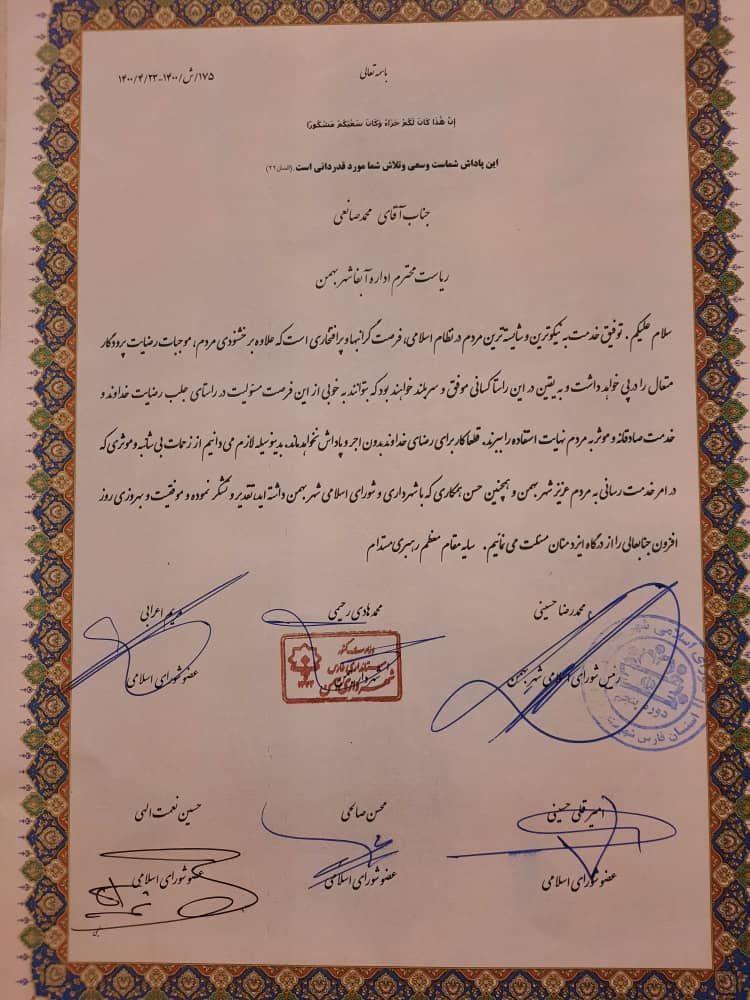 باسمه تعالی
۱۷۵/ش/۱۴۰۰-۱۴۰۰/۴/۲۳
إِنَّ هَٰذَا كَانَ لَكُمْ جَزَاءً وَكَانَ سَعْيُكُمْ مَشْكُورًا
این پاداش شماست وسعی وتلاش شما مورد قدردانی است (انسان۲۲)
جناب آقای محمد صانعی
ریاست محترم اداره آبفا شهر بهمن
سلام علیکم . توفیق خدمت به نیکوترین و شایسته ترین مردم در نظام اسلامی، فرصت گرانبها و پرافتخاری است که علاوه بر خشنودی مردم، موجبات رضایت پروردگار
متعال را در پی خواهد داشت و به یقین در این راستا کسانی موفق و سربلند خواهند بود که بتوانند به خوبی از این فرصت مسئولیت در راستای جلب رضایت خداوند و
خدمت صادقانه و موثر به مردم نهایت استفاده را ببرند. قطعا کار برای رضای خداوند بدون اجر و پاداش نخواهد ماند. بدینوسیله لازم می دانیم از زحمات بی شائبه و موثری که
در امر خدمت رسانی به مردم عزیز شهر بهمن و همچنین حسن همکاری که با شهرداری و شورای اسلامی شهر بهمن داشته اید، تقدیر و تشکر نموده و موفقیت و بهروزی روز
افزون جنابعالی را از درگاه ایزد منان مسئلت می نماییم. سایه مقام معظم رهبری مستدام
محمدرضا حسینی
محمدهادی رحیمی
مریم اعرابی
رئیس شورای اسلامی شهر بهمن
شهردار
عضو شورای اسلامی
وزارت کشور
استانداری فارس
شهرداری بهمن
شورای اسلامی شهر
دوره پنجم
استان فارس شهر
امیرقلی حسینی
محسن صالحی
حسین نعمت الهی
عضو شورای اسلامی
عضو شورای اسلامی
عضو شورای اسلامی